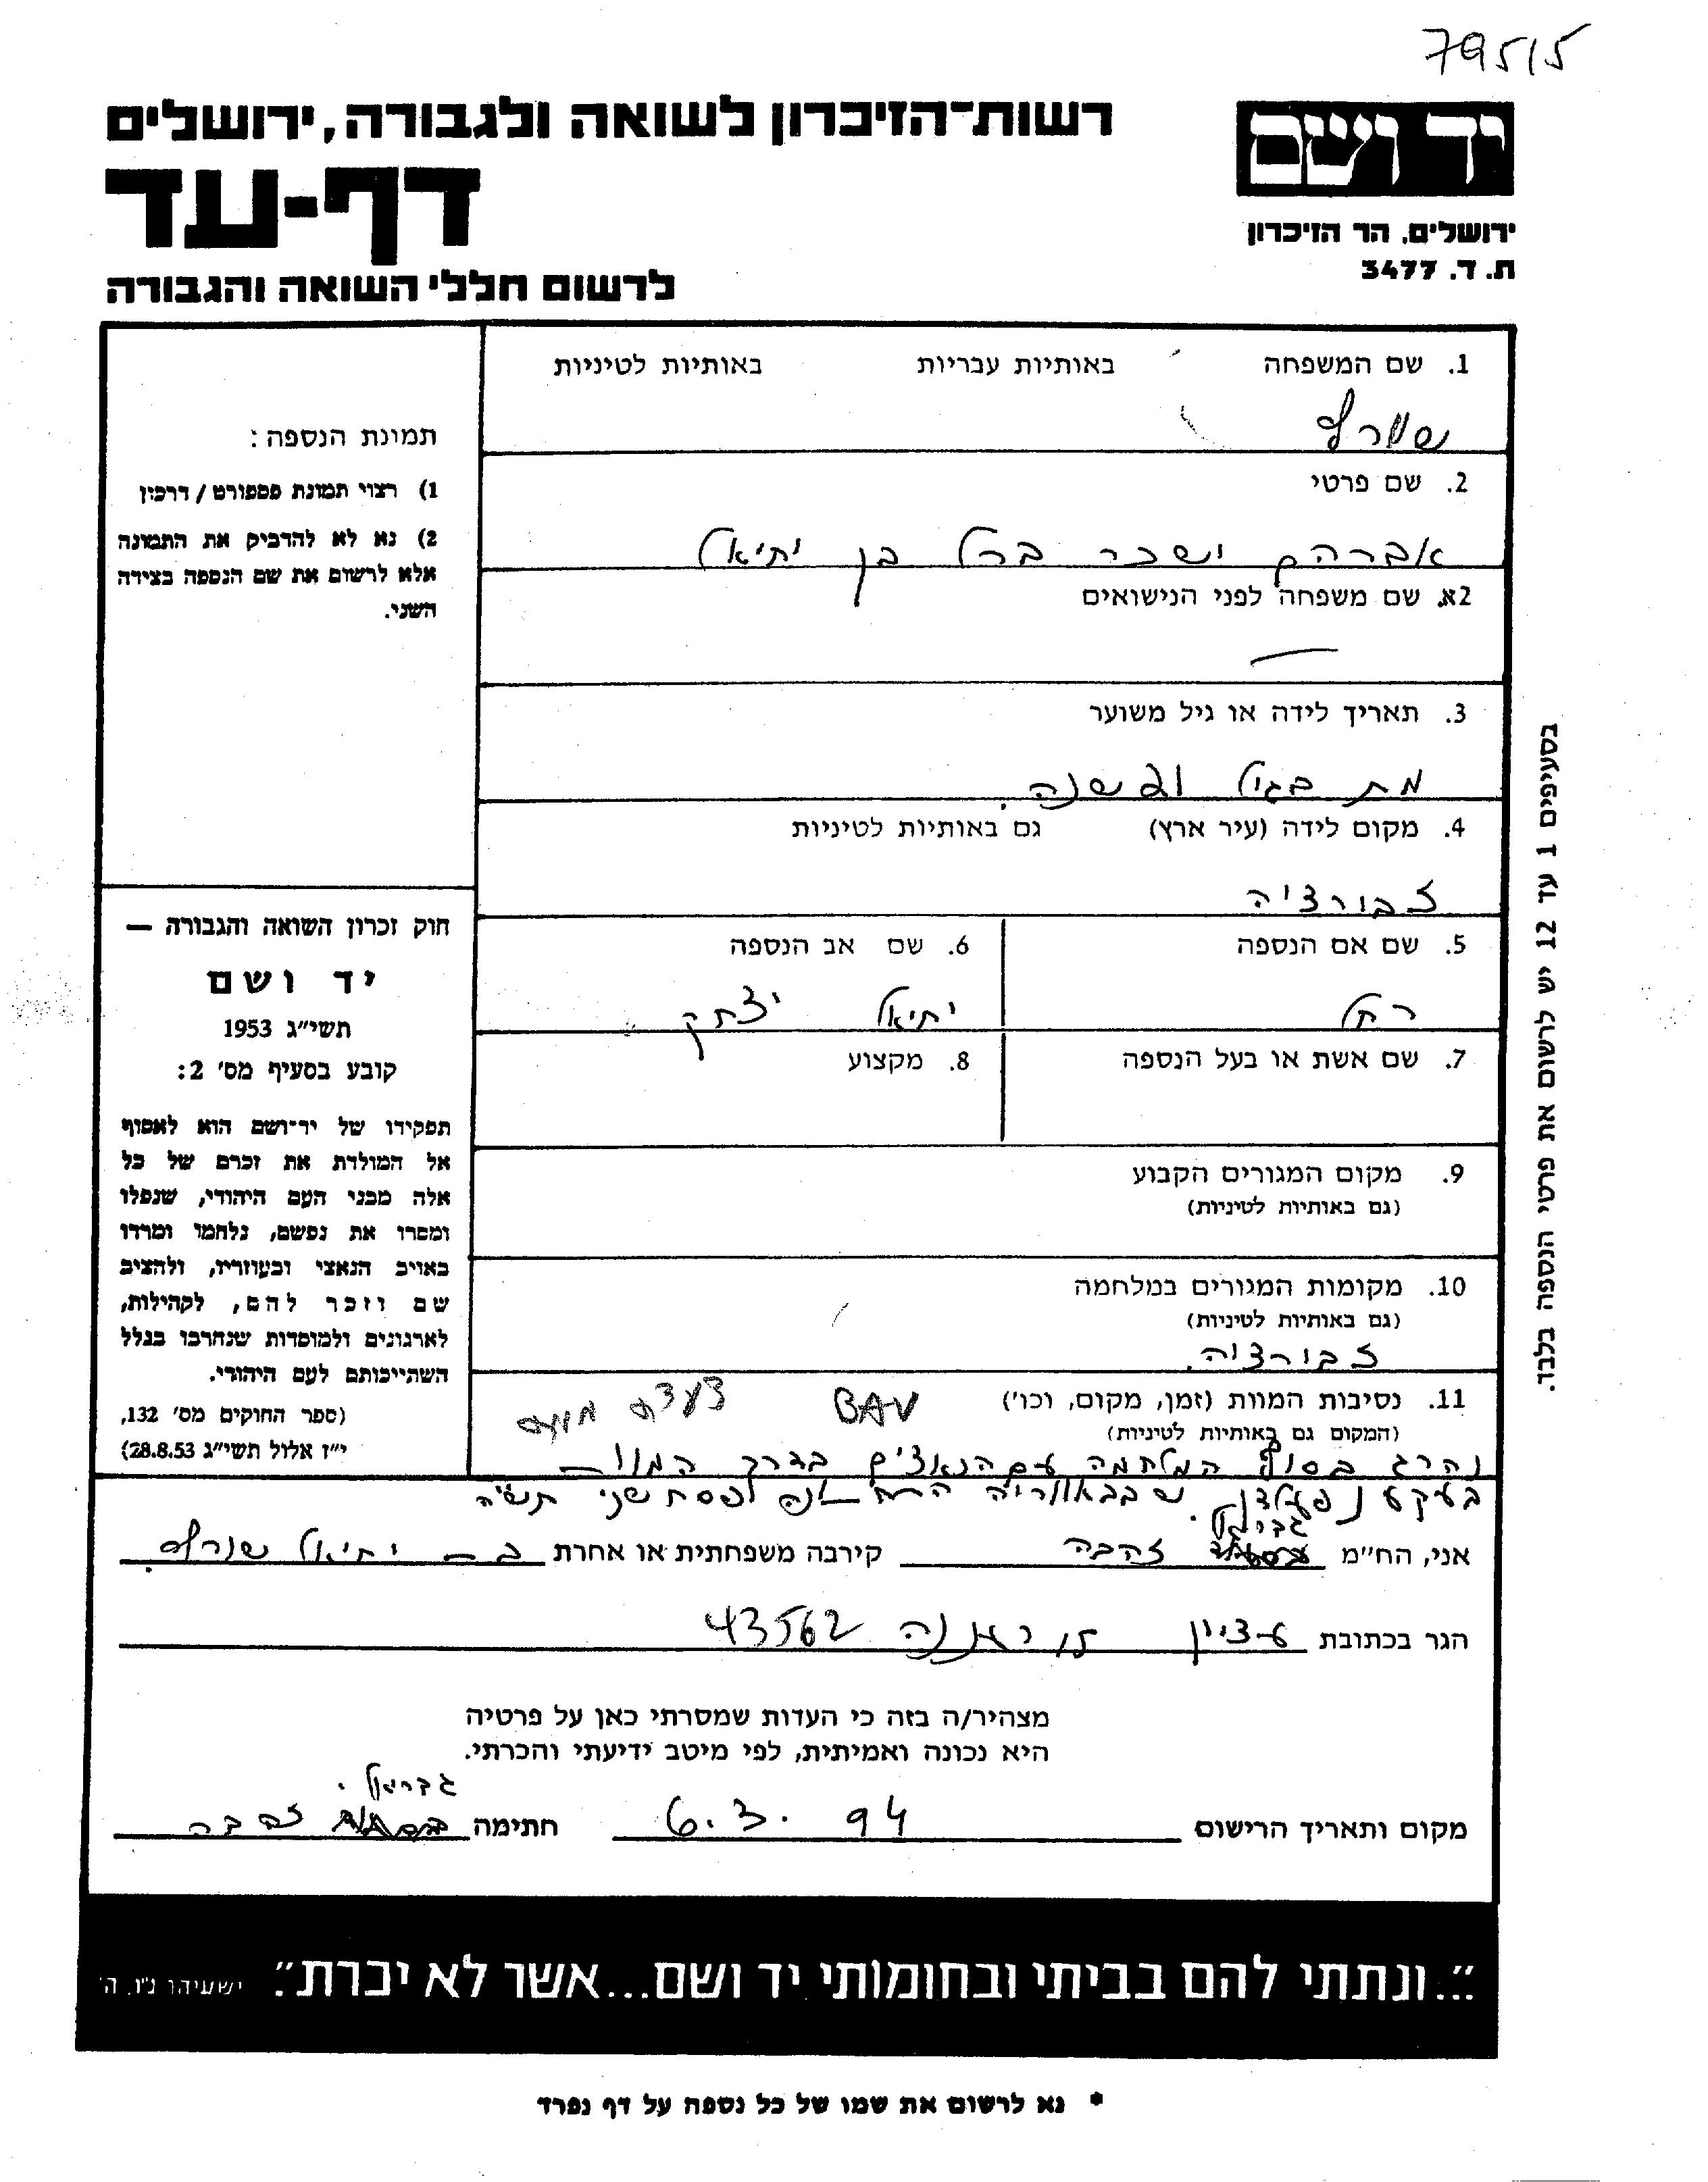 79515
יד ושם
ירושלים. הר הזיכרון
ת. ד. 3477
רשות-הזיכרון לשואה ולגבורה, ירושלים
דף-עד
לרשום חללי השואה והגבורה
1. שם המשפחה באותיות עבריות באותיות לטיניות
שורף
2. שם פרטי
אברהם ישכר ברל בן יחיאל
2א. שם משפחה לפני הנישואים
—
3. תאריך לידה או גיל משוער
מת בגיל
4. מקום לידה (עיר ארץ) גם באותיות לטיניות
זבורציה
5. שם אם הנספה 6. שם אב הנספה
רחל יחיאל יצחק
7. שם אשת או בעל הנספה 8. מקצוע
9. מקום המגורים הקבוע
(גם באותיות לטיניות)
10. מקומות המגורים במלחמה
(גם באותיות לטיניות)
זבורציה.
11. נסיבות המוות (זמן, מקום, וכו') BAV צעדת מוות
(המקום גם באותיות לטיניות)
נהרג בסוף המלחמה עם הנאצים בדרך המוות
לפסח שני תש"ה
גבריאל
אני, הח"מ זהבה קירבה משפחתית או אחרת בת יחיאל שורף.
הגר בכתובת עציון 15 רעננה 43562
מצהיר/ה בזה כי העדות שמסרתי כאן על פרטיה
היא נכונה ואמיתית, לפי מיטב ידיעתי והכרתי.
גבריאל.
מקום ותאריך הרישום 6.3.94 חתימה זהבה
תמונת הנספה:
1) רצוי תמונת פספורט / דרכון
2) נא לא להדביק את התמונה
אלא לרשום את שם הנספה בצידה
השני.
חוק זכרון השואה והגבורה —
יד ושם
תשי"ג 1953
קובע בסעיף מס' 2:
תפקידו של יד-ושם הוא לאסוף
אל המולדת את זכרם של כל
אלה מבני העם היהודי, שנפלו
ומסרו את נפשם, נלחמו ומרדו
באויב הנאצי ובעוזריו, ולהציב
שם וזכר להם, לקהילות,
לארגונים ולמוסדות שנחרבו בגלל
השתייכותם לעם היהודי.
(ספר החוקים מס' 132,
י"ז אלול תשי"ג 28.8.53)
בסעיפים 1 עד 12 יש לרשום את פרטי הנספה בלבד.
"...ונתתי להם בביתי ובחומותי יד ושם...אשר לא יכרת." ישעיהו נ"ו. ה'
* נא לרשום את שמו של כל נספה על דף נפרד